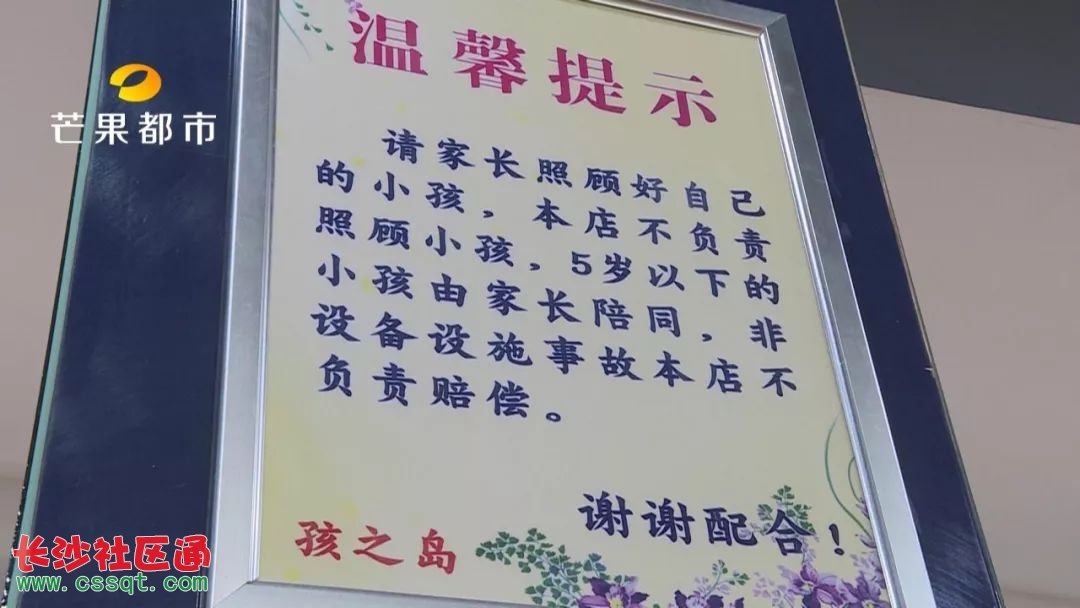 温馨提示
芒果都市
请家长照顾好自己
的小孩，本店不负责
照顾小孩，5岁以下的
小孩由家长陪同，非
设备设施事故本店不
负责赔偿。
谢谢配合！
孩之岛
长沙社区通
www.cssqt.com